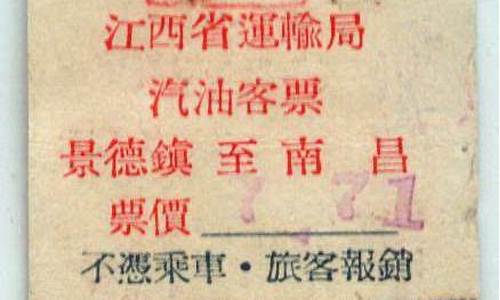 江西省運輸局
汽油客票
景德鎮 至 南 昌
票價 7.71
不憑乘車·旅客報銷